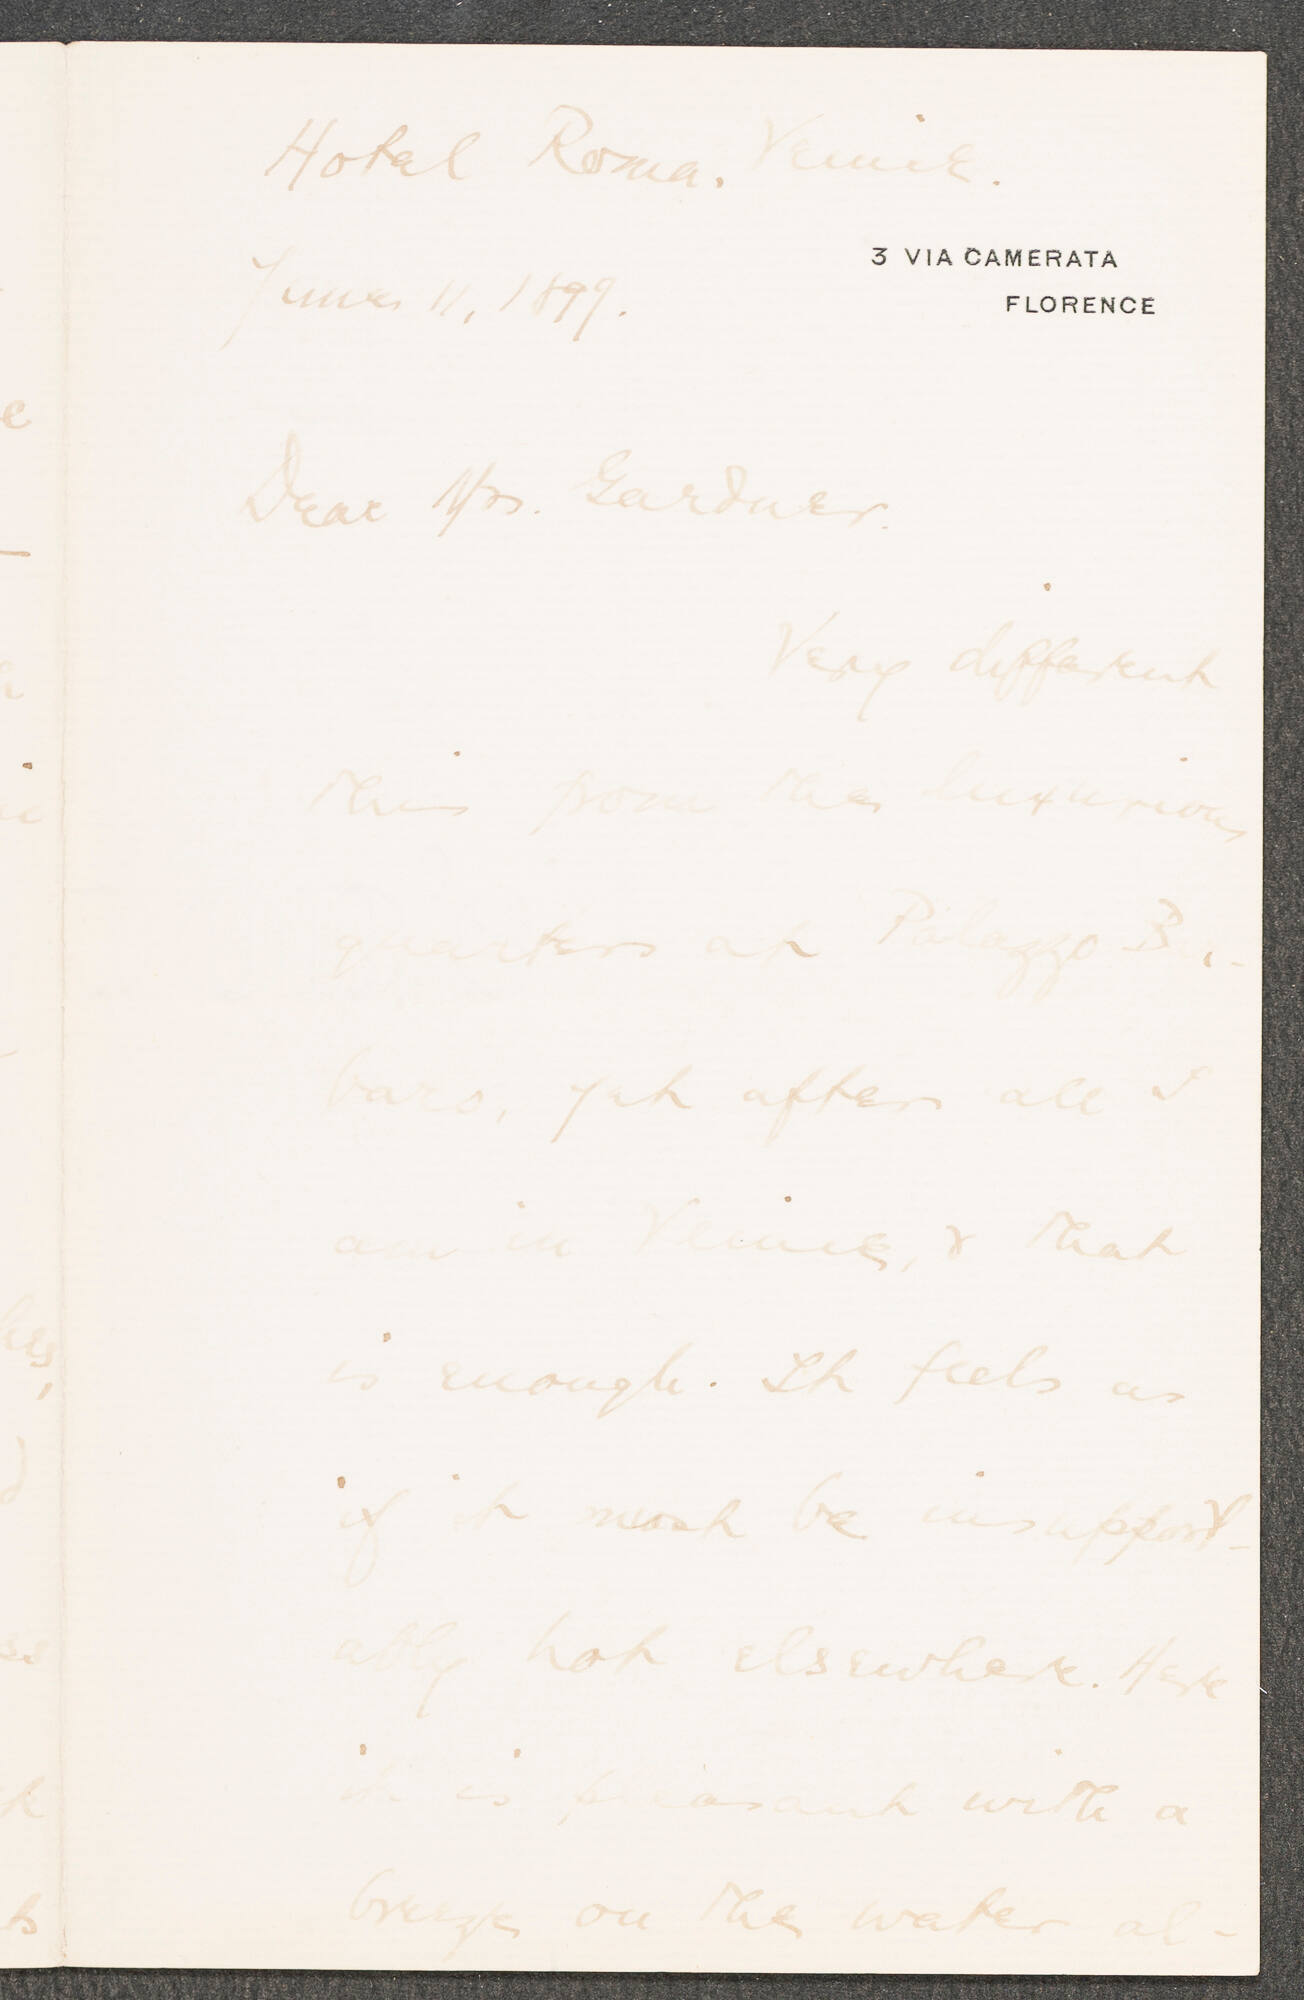 Hotel Roma. Venice.
3 VIA CAMERATA
FLORENCE
June 11, 1899.
Dear Mrs. Gardner.
Very different
this from the luxurious
quarters at Palazzo Bar-
baro, yet after all I
am in Venice, & that
is enough. It feels as
if it must be insupport-
ably hot elsewhere. Here
it is pleasant with a
breeze on the water al-